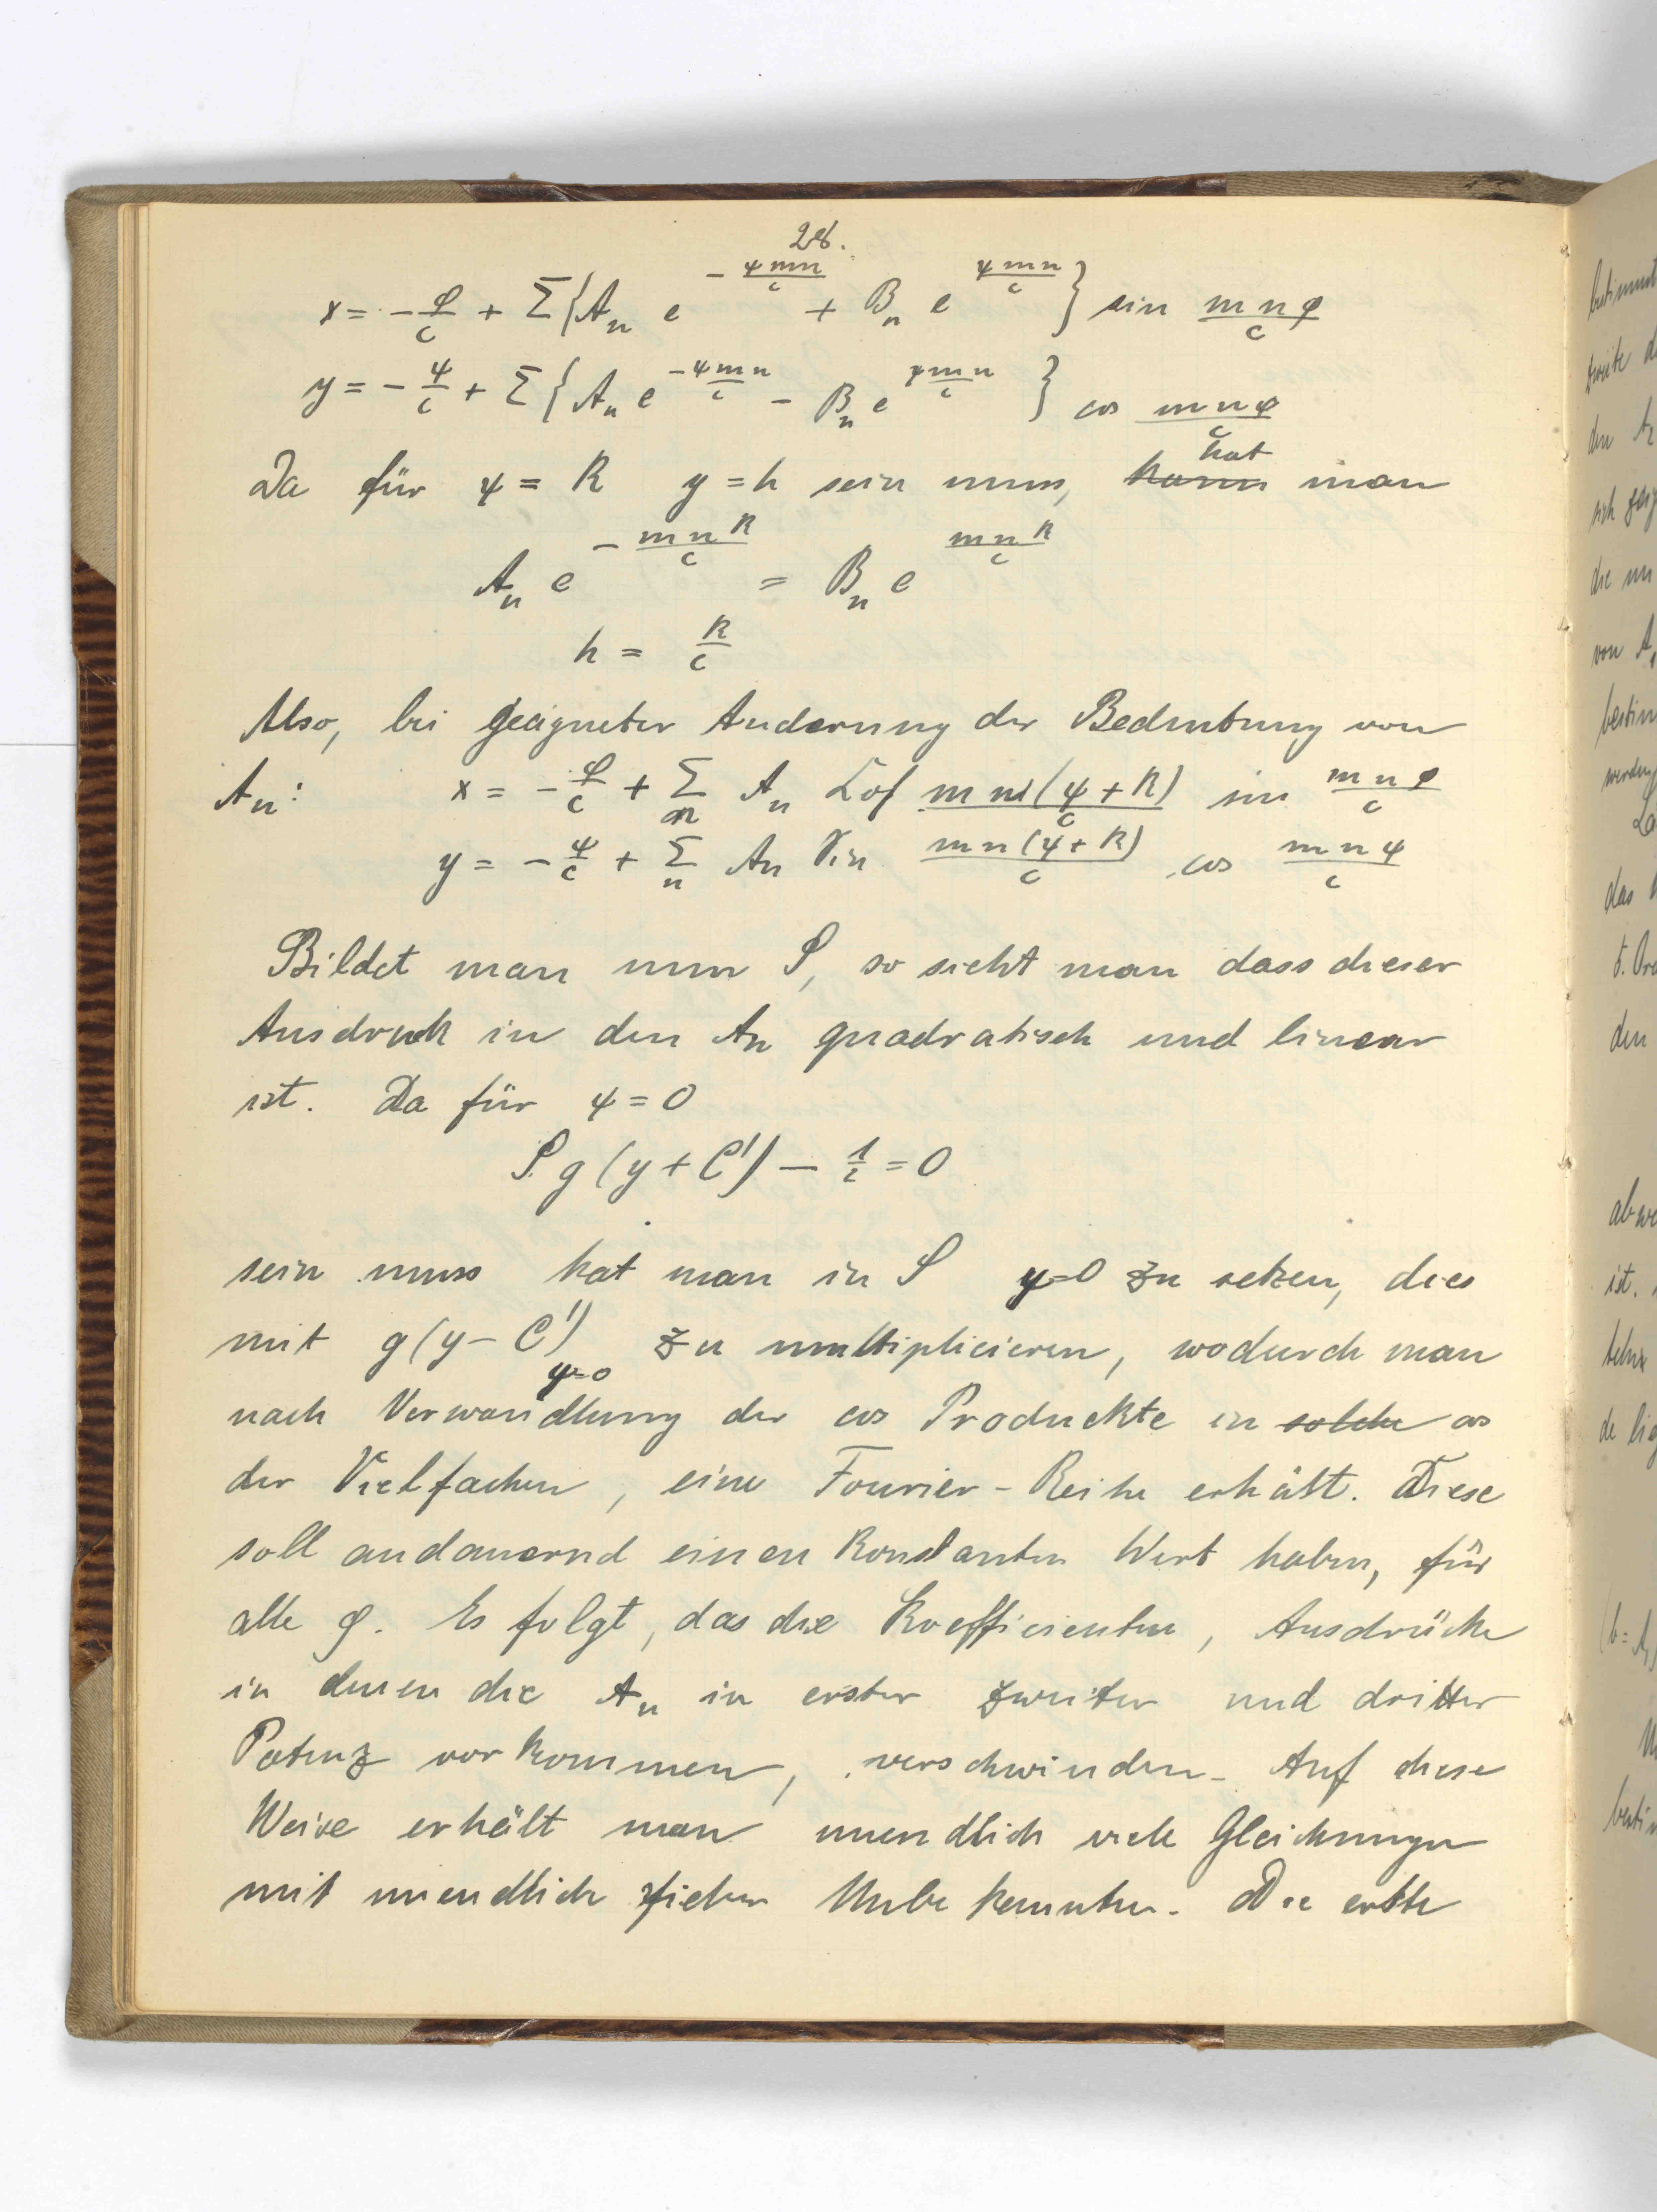 28.
x = - φ/c + Σ{A_n e^(-ψmn/c) + B_n e^(ψmn/c)} sin mnφ/c
y = - ψ/c + Σ{A_n e^(-ψmn/c) - B_n e^(ψmn/c)} cos mnφ/c
hat
Da für ψ = k y = h sein muss, kann man
A_n e^(-mnk/c) = B_n e^(mnk/c)
h = k/c
Also, bei geeigneter Änderung der Bedeutung von
A_n: x = - φ/c + Σ_n A_n Cof mn(ψ+k)/c sin mnφ/c
y = - ψ/c + Σ_n A_n Sin mn(ψ+k)/c cos mnφ/c
Bildet man nun S, so sieht man dass dieser
Ausdruck in den A_n quadratisch und linear
ist. Da für ψ = 0
S. g(y + C') - 1/2 = 0
sein muss hat man in S ψ=0 zu setzen, dies
mit g(y - C')_ψ=0 zu multiplicieren, wodurch man
nach Verwandlung der cos Produckte in solche cos
der Vielfachen, eine Fourier-Reihe erhält. Diese
soll andauernd einen konstanten Wert haben, für
alle φ. Es folgt, das die Koefficienten, Ausdrücke
in denen die A_n in erster zweiter und dritter
Potenz vorkommen, verschwinden. Auf diese
Weise erhält man unendlich viele Gleichungen
mit unendlich vielen Unbekannten. Die erste